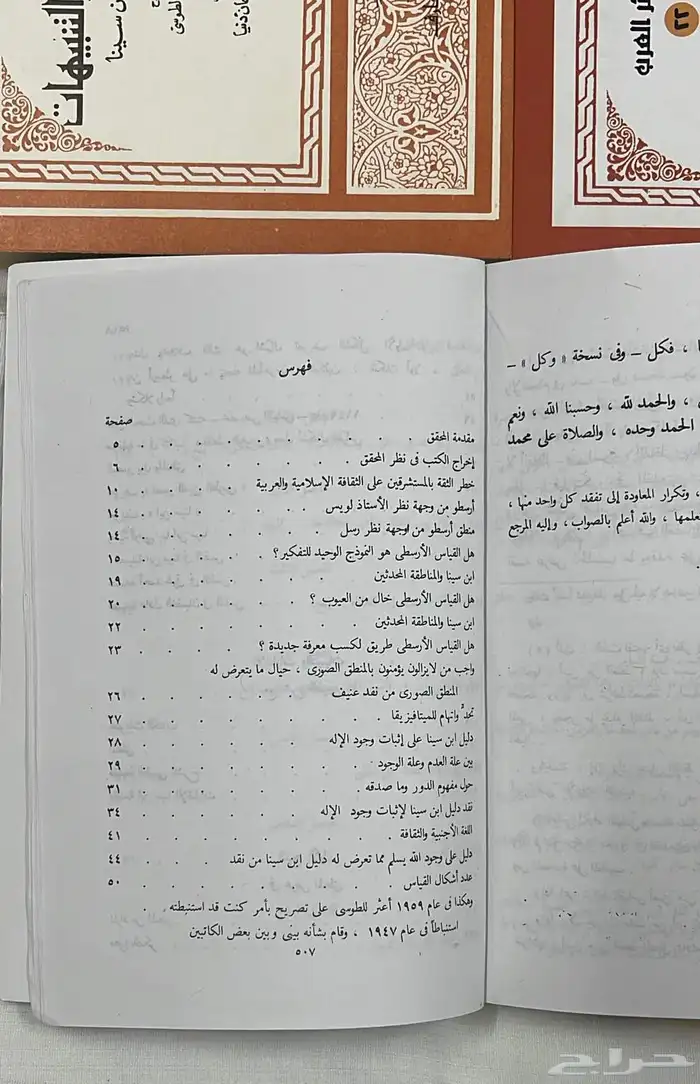 التنبيهات
ن سينا
الطوسى
ان دنيا
العرب
٢٢
فهرس
صفحة
مقدمة المحقق . . . . . . . . ٥
إخراج الكتب فى نظر المحقق . . . . . . . ٦
خطر الثقة بالمستشرقين على الثقافة الإسلامية والعربية . . . . ١٠
أرسطو من وجهة نظر الأستاذ لويس . . . . . . ١٤
منطق أرسطو من وجهة نظر رسل . . . . . . ١٤
هل القياس الأرسطى هو النموذج الوحيد للتفكير ؟ . . . . . ١٥
ابن سينا والمناطقة المحدثين . . . . . . ١٩
هل القياس الأرسطى خال من العيوب ؟ . . . . . ٢٠
ابن سينا والمناطقة المحدثين . . . . . . ٢٢
هل القياس الأرسطى طريق لكسب معرفة جديدة ؟ . . . . ٢٣
واجب من لايزالون يؤمنون بالمنطق الصورى ، حيال ما يتعرض له
المنطق الصورى من نقد عنيف . . . . . . ٢٦
تحدٌّ واتهام للميتافيزيقا . . . . . . . ٢٧
دليل ابن سينا على إثبات وجود الإله . . . . . . ٢٨
بين علة العدم وعلة الوجود . . . . . . . ٢٩
حول مفهوم الدور وما صدقه . . . . . . ٣١
نقد دليل ابن سينا لإثبات وجود الإله . . . . . ٣٤
اللغة الأجنبية والثقافة . . . . . . . ٤١
دليل على وجود الله يسلم مما تعرض له دليل ابن سينا من نقد . . . ٤٤
عدد أشكال القياس . . . . . . . ٥٠
وهكذا فى عام ١٩٥٩ أعثر للطوسى على تصريح بأمر كنت قد استنبطته .
استنباطاً فى عام ١٩٤٧ ، وقام بشأنه بينى وبين بعض الكاتبين
٥٠٧
، فكل – وفى نسخة « وكل » –
، والحمد لله ، وحسبنا الله ، ونعم
الحمد وحده ، والصلاة على محمد
، وتكرار المعاودة إلى تفقد كل واحد منها ،
، والله أعلم بالصواب ، وإليه المرجع
حراج